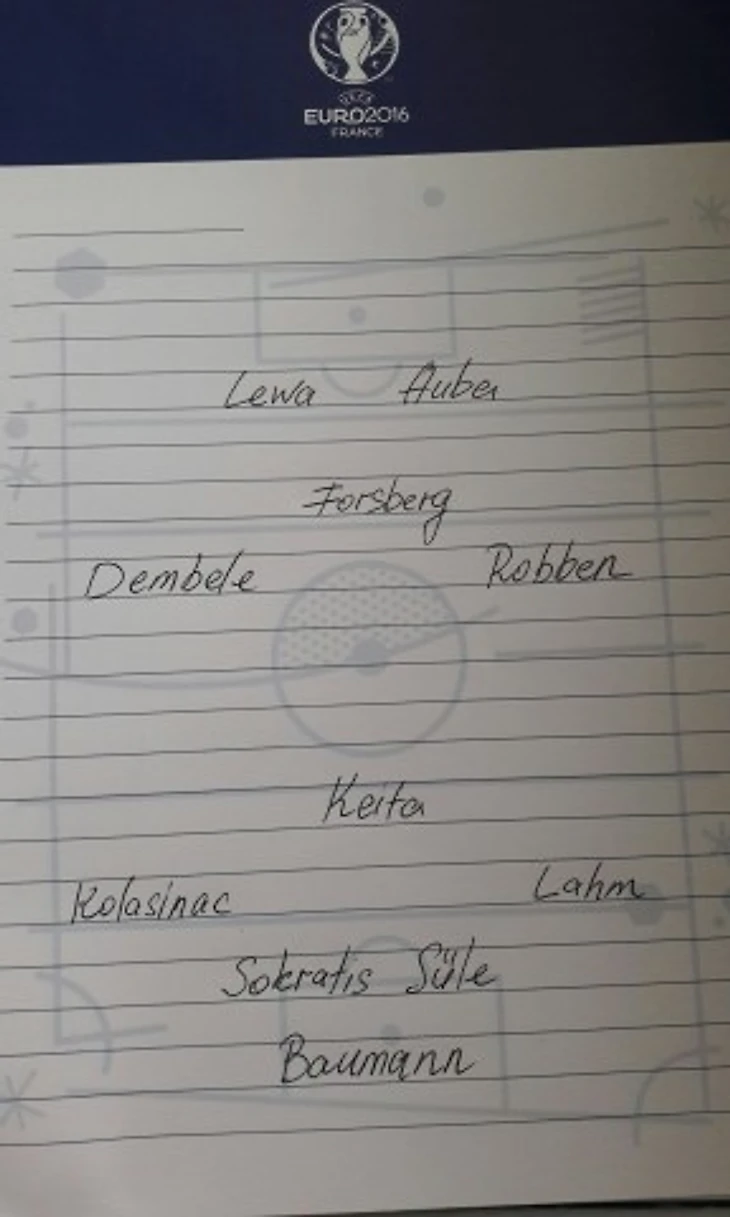 UEFA
EURO2016
FRANCE
Lewa Auba
Forsberg
Dembele Robben
Keita
Kolasinac Lahm
Sokratis Süle
Baumann